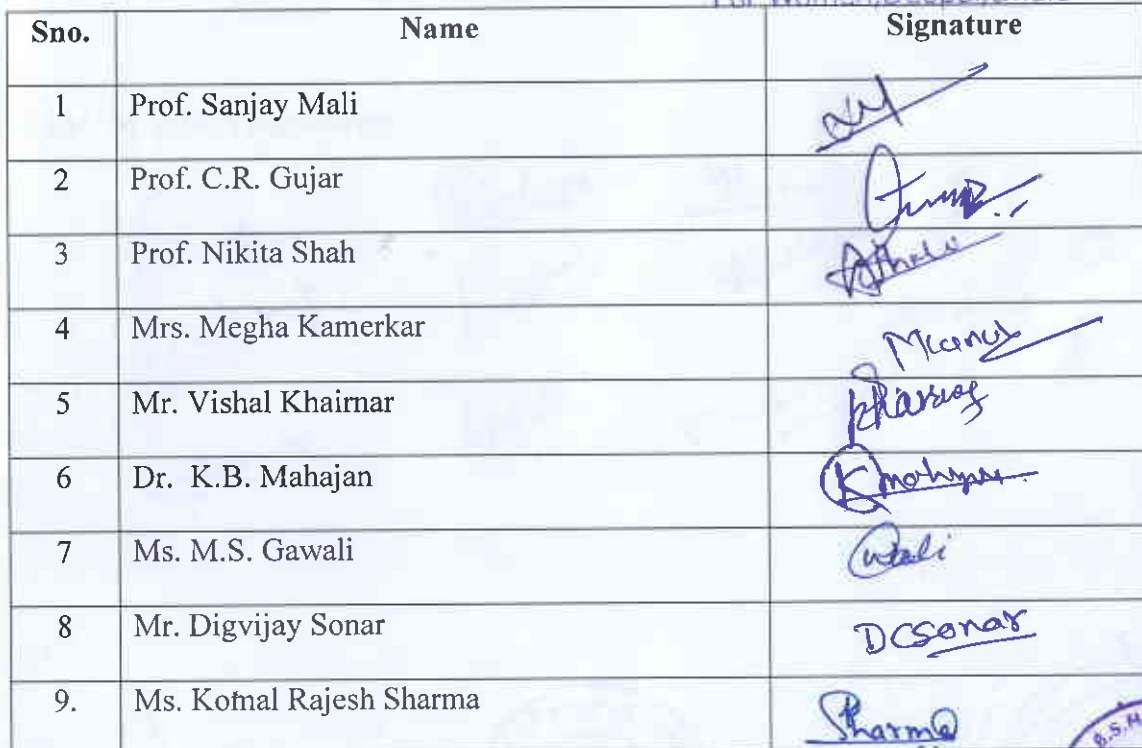 Sno. Name Signature
1 Prof. Sanjay Mali
2 Prof. C.R. Gujar
3 Prof. Nikita Shah
4 Mrs. Megha Kamerkar
5 Mr. Vishal Khairnar
6 Dr. K.B. Mahajan
7 Ms. M.S. Gawali
8 Mr. Digvijay Sonar DCSonar
9. Ms. Komal Rajesh Sharma Sharma